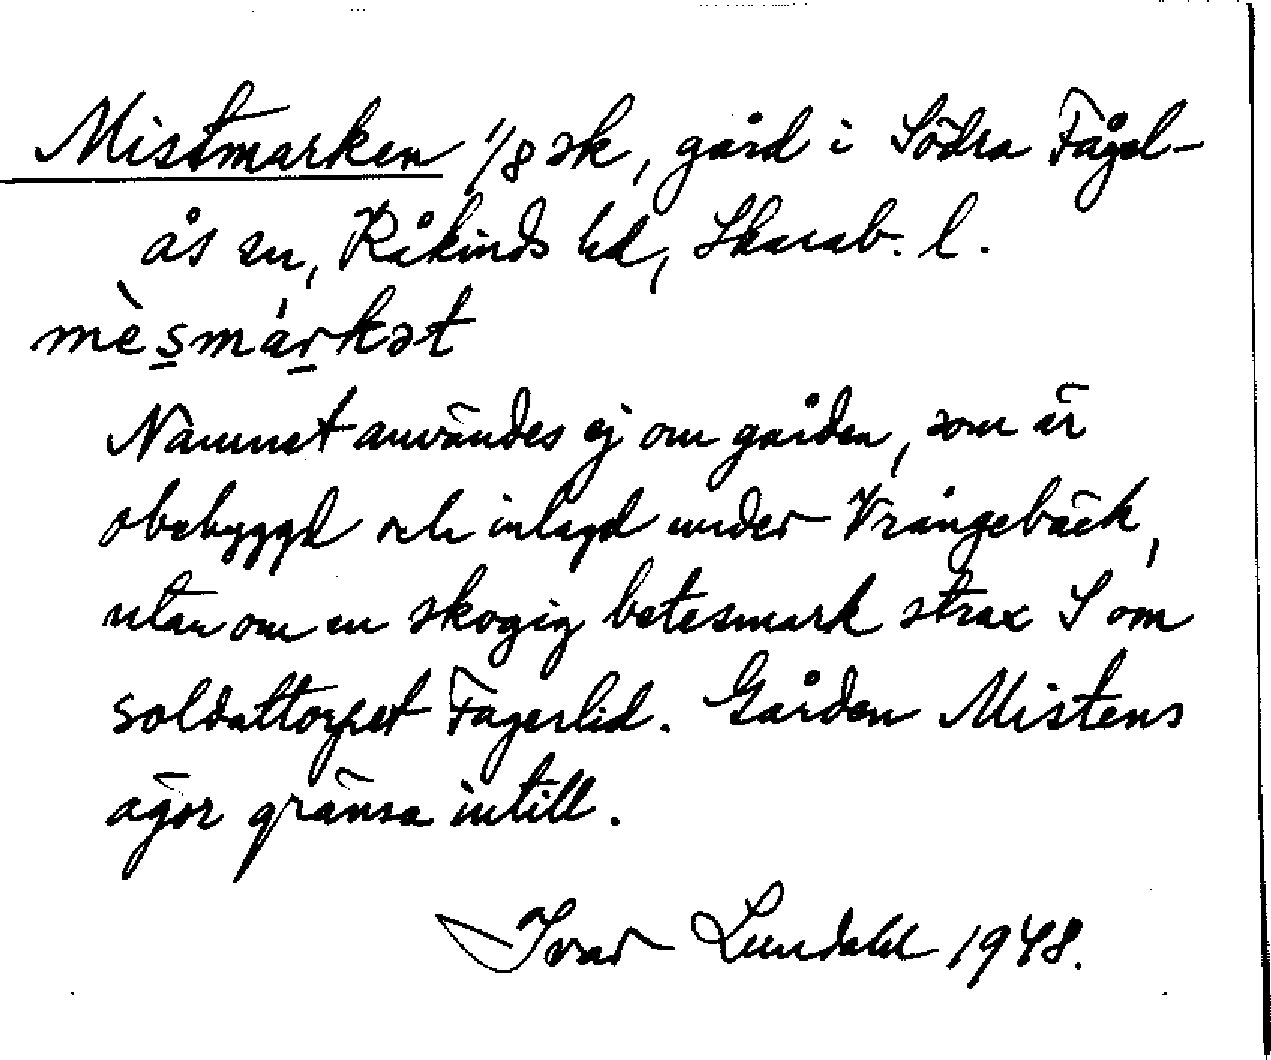 Mistmarken 1/8 sk, gård i Södra Fågel-
ås sn, Kåkinds hd, Skarab. l.
mè̀s̠már̠kət
Namnet användes ej om gården, som är
obebyggd och inlagd under Vrångebäck,
utan om en skogig betesmark strax S om
soldattorpet Fagerlid. Gården Mistens
ägor gränsa intill.
Ivar Lundahl 1948.